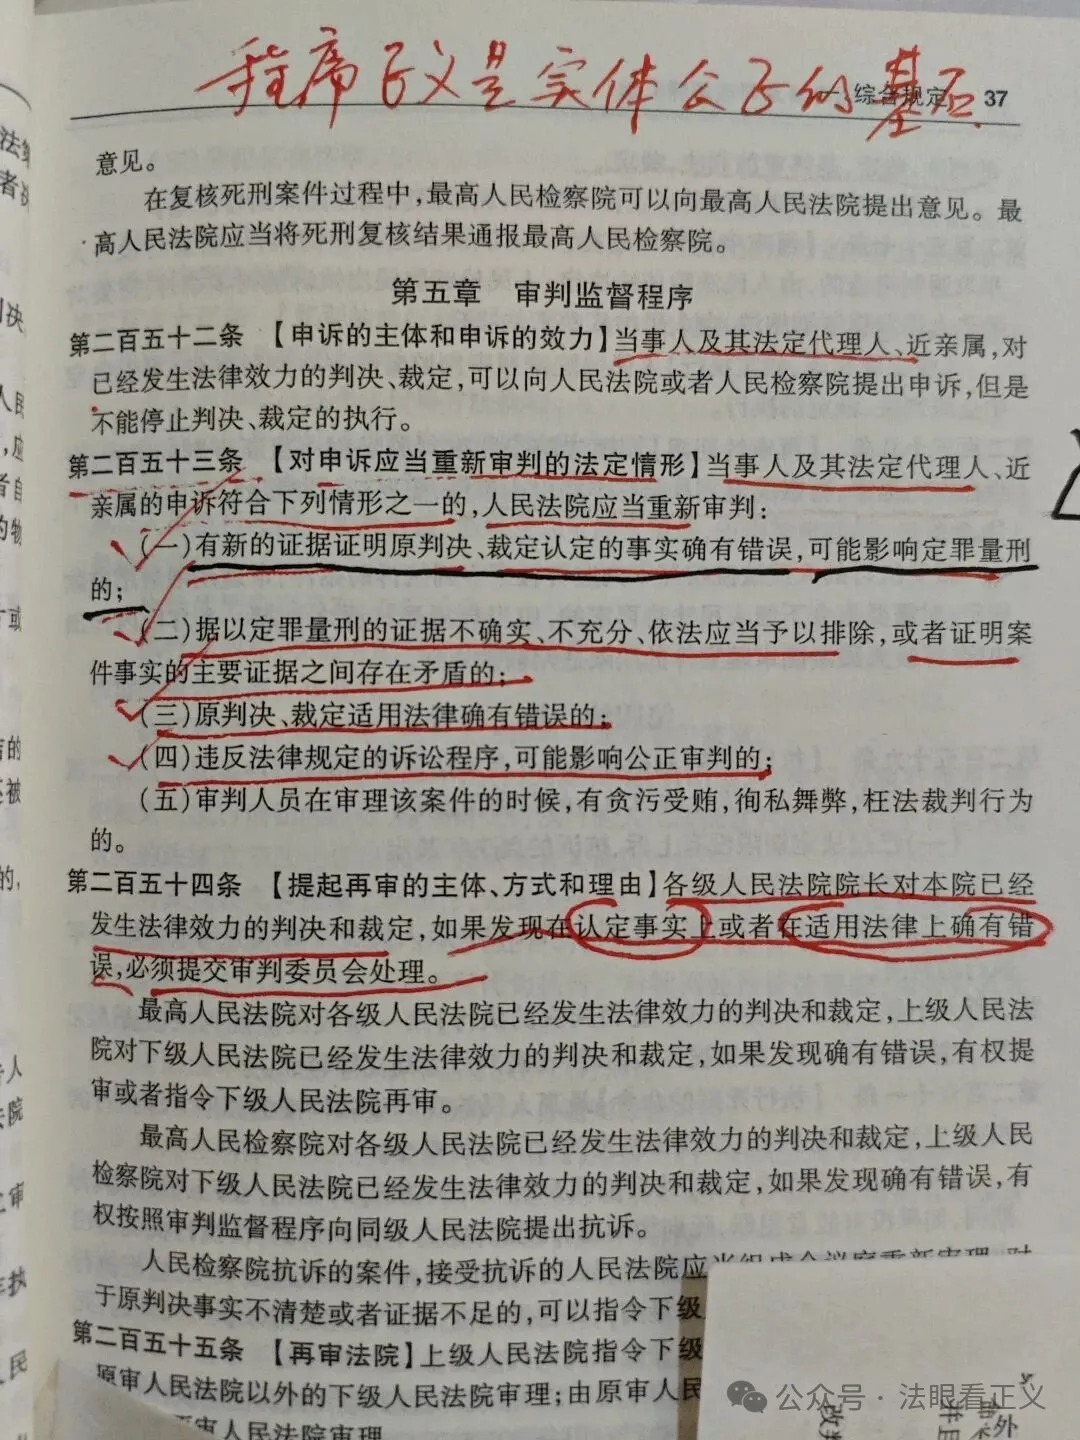 程序正义是实体公正的基石
综合规定 37
意见。
在复核死刑案件过程中,最高人民检察院可以向最高人民法院提出意见。最
高人民法院应当将死刑复核结果通报最高人民检察院。
第五章 审判监督程序
第二百五十二条 【申诉的主体和申诉的效力】当事人及其法定代理人、近亲属,对
已经发生法律效力的判决、裁定,可以向人民法院或者人民检察院提出申诉,但是
不能停止判决、裁定的执行。
第二百五十三条 【对申诉应当重新审判的法定情形】当事人及其法定代理人、近
亲属的申诉符合下列情形之一的,人民法院应当重新审判:
(一)有新的证据证明原判决、裁定认定的事实确有错误,可能影响定罪量刑
的;
(二)据以定罪量刑的证据不确实、不充分、依法应当予以排除,或者证明案
件事实的主要证据之间存在矛盾的;
(三)原判决、裁定适用法律确有错误的;
(四)违反法律规定的诉讼程序,可能影响公正审判的;
(五)审判人员在审理该案件的时候,有贪污受贿,徇私舞弊,枉法裁判行为
的。
第二百五十四条 【提起再审的主体、方式和理由】各级人民法院院长对本院已经
发生法律效力的判决和裁定,如果发现在认定事实上或者在适用法律上确有错
误,必须提交审判委员会处理。
最高人民法院对各级人民法院已经发生法律效力的判决和裁定,上级人民法
院对下级人民法院已经发生法律效力的判决和裁定,如果发现确有错误,有权提
审或者指令下级人民法院再审。
最高人民检察院对各级人民法院已经发生法律效力的判决和裁定,上级人民
检察院对下级人民法院已经发生法律效力的判决和裁定,如果发现确有错误,有
权按照审判监督程序向同级人民法院提出抗诉。
人民检察院抗诉的案件,接受抗诉的人民法院应当组成合议庭重新审理,对
于原判决事实不清楚或者证据不足的,可以指令下级
第二百五十五条 【再审法院】上级人民法院指令下级
原审人民法院以外的下级人民法院审理;由原审人民
原审人民法院审理
公众号·法眼看正义